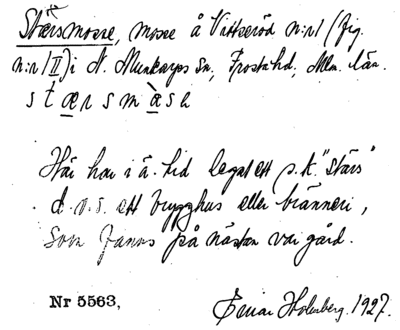 Stärsmosse, mosse å Vittseröd n:r 1 (fig.
n:r 1 II) i N. Munkarps sn, Frosta hd, Mlm. län.
stærsmåsa
Här har i ä. tid legat ett s.k. "stärs"
d.v.s. ett brygghus eller bränneri,
som fanns på nästan var gård.
Nr 5563, Einar Holmberg. 1927.